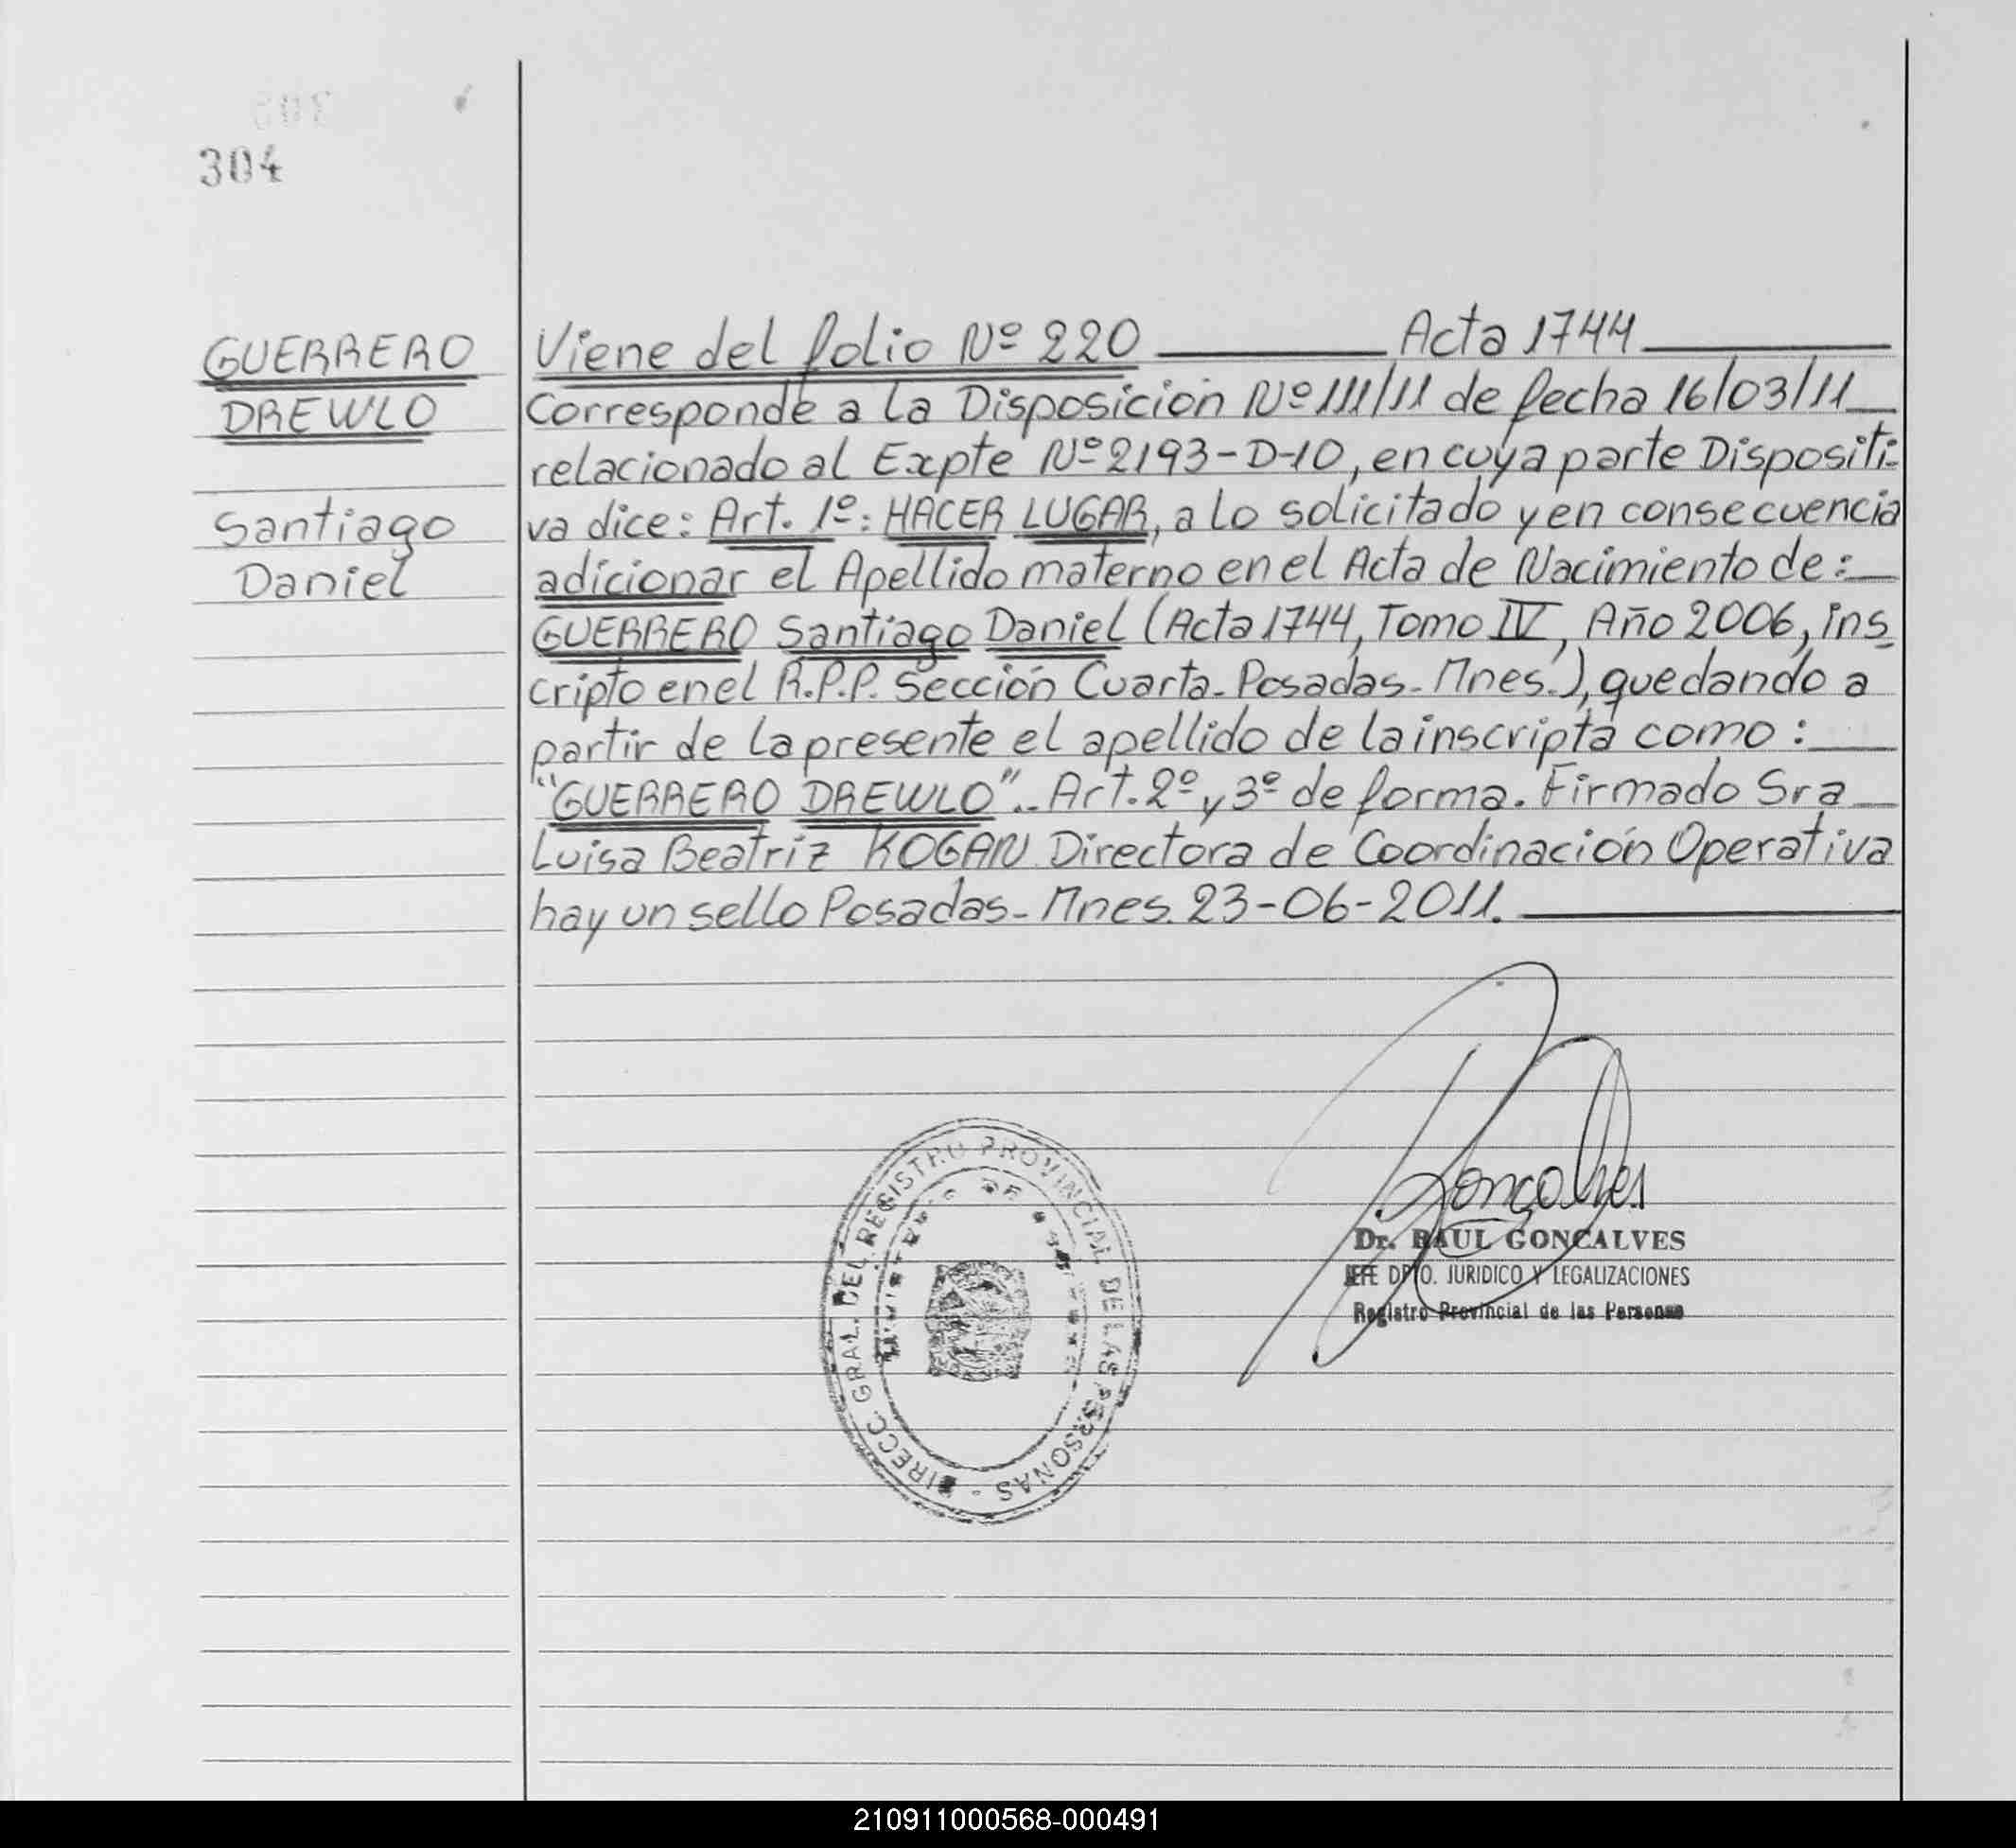 304
GUERRERO
DREWLO
Santiago
Daniel
Viene del folio Nº 220 Acta 1744
Corresponde a la Disposición Nº 111/11 de fecha 16/03/11
relacionado al Expte Nº 2193-D-10, en cuya parte Dispositi-
va dice: Art. 1º: HACER LUGAR, a lo solicitado y en consecuencia
adicionar el Apellido materno en el Acta de Nacimiento de:
GUERRERO Santiago Daniel (Acta 1744, Tomo IV, Año 2006, ins
cripto en el R.P.P. Sección Cuarta. Posadas - Mnes.), quedando a
partir de la presente el apellido de la inscripta como:
"GUERRERO DREWLO".. Art. 2º y 3º de forma. Firmado Sra
Luisa Beatriz KOGAN Directora de Coordinación Operativa
hay un sello Posadas - Mnes. 23-06-2011.
DIRECC. GRAL. DEL REGISTRO PROVINCIAL DE LAS PERSONAS -
Gonçalves
Dr. RAUL GONÇALVES
JEFE DPTO. JURIDICO Y LEGALIZACIONES
Registro Provincial de las Personas
210911000568-000491